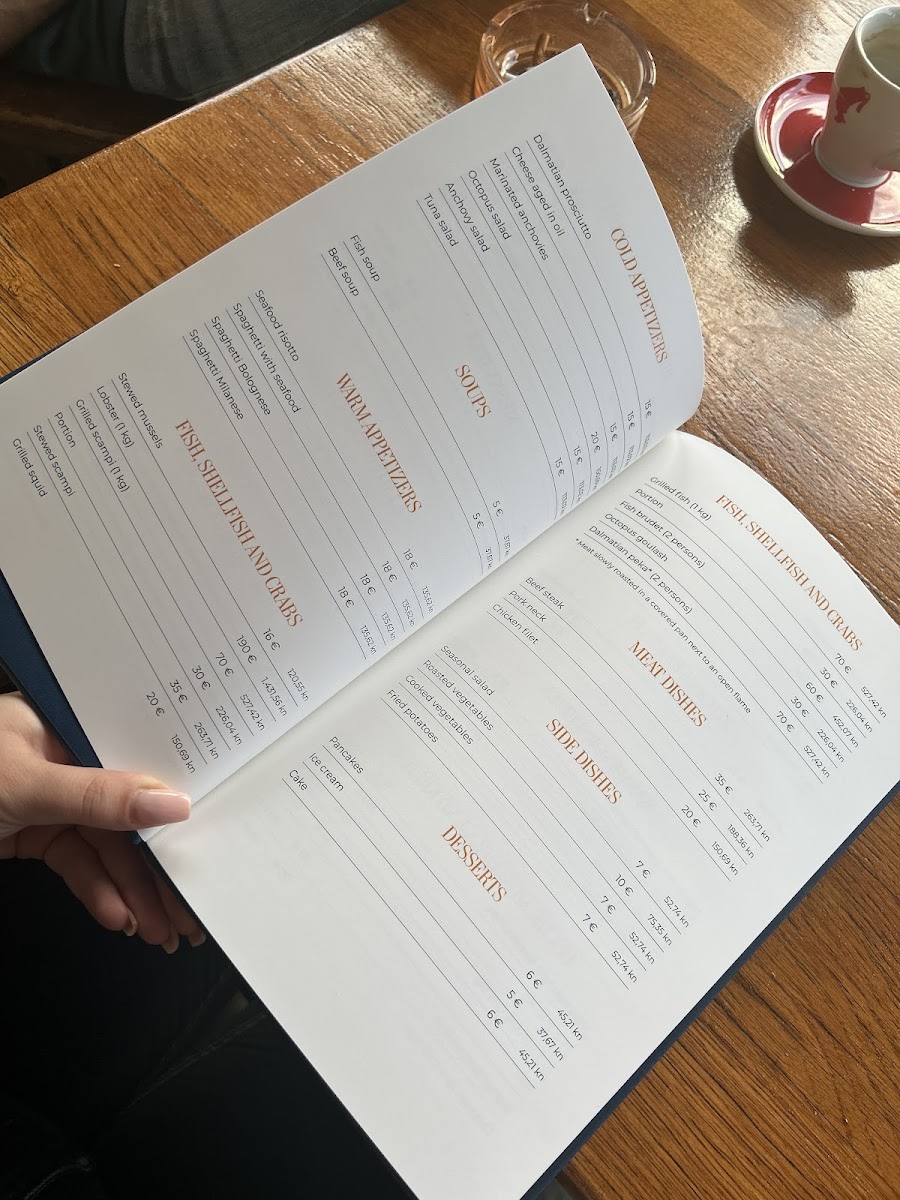 COLD APPETIZERS
Dalmatian prosciutto 15 €
Cheese aged in oil 15 €
Marinated anchovies 15 €
Octopus salad 20 €
Anchovy salad 15 €
Tuna salad 15 €
SOUPS
Fish soup 5 € 37,67 kn
Beef soup 5 € 37,67 kn
WARM APPETIZERS
Seafood risotto 18 € 135,62 kn
Spaghetti with seafood 18 € 135,62 kn
Spaghetti Bolognese 18 € 135,62 kn
Spaghetti Milanese 18 € 135,62 kn
FISH, SHELLFISH AND CRABS
Stewed mussels 16 € 120,55 kn
Lobster (1 kg) 190 € 1.431,56 kn
Grilled scampi (1 kg) 70 € 527,42 kn
Portion 30 € 226,04 kn
Stewed scampi 35 € 263,71 kn
Grilled squid 20 € 150,69 kn
FISH, SHELLFISH AND CRABS
Grilled fish (1 kg) 70 € 527,42 kn
Portion 30 € 226,04 kn
Fish brudet (2 persons) 60 € 452,07 kn
Octopus goulash 30 € 226,04 kn
Dalmatian peka* (2 persons) 70 € 527,42 kn
*Meat slowly roasted in a covered pan next to an open flame
MEAT DISHES
Beef steak 35 € 263,71 kn
Pork neck 25 € 188,36 kn
Chicken filet 20 € 150,69 kn
SIDE DISHES
Seasonal salad 7 € 52,74 kn
Roasted vegetables 10 € 75,35 kn
Cooked vegetables 7 € 52,74 kn
Fried potatoes 7 € 52,74 kn
DESSERTS
Pancakes 6 € 45,21 kn
Ice cream 5 € 37,67 kn
Cake 6 € 45,21 kn